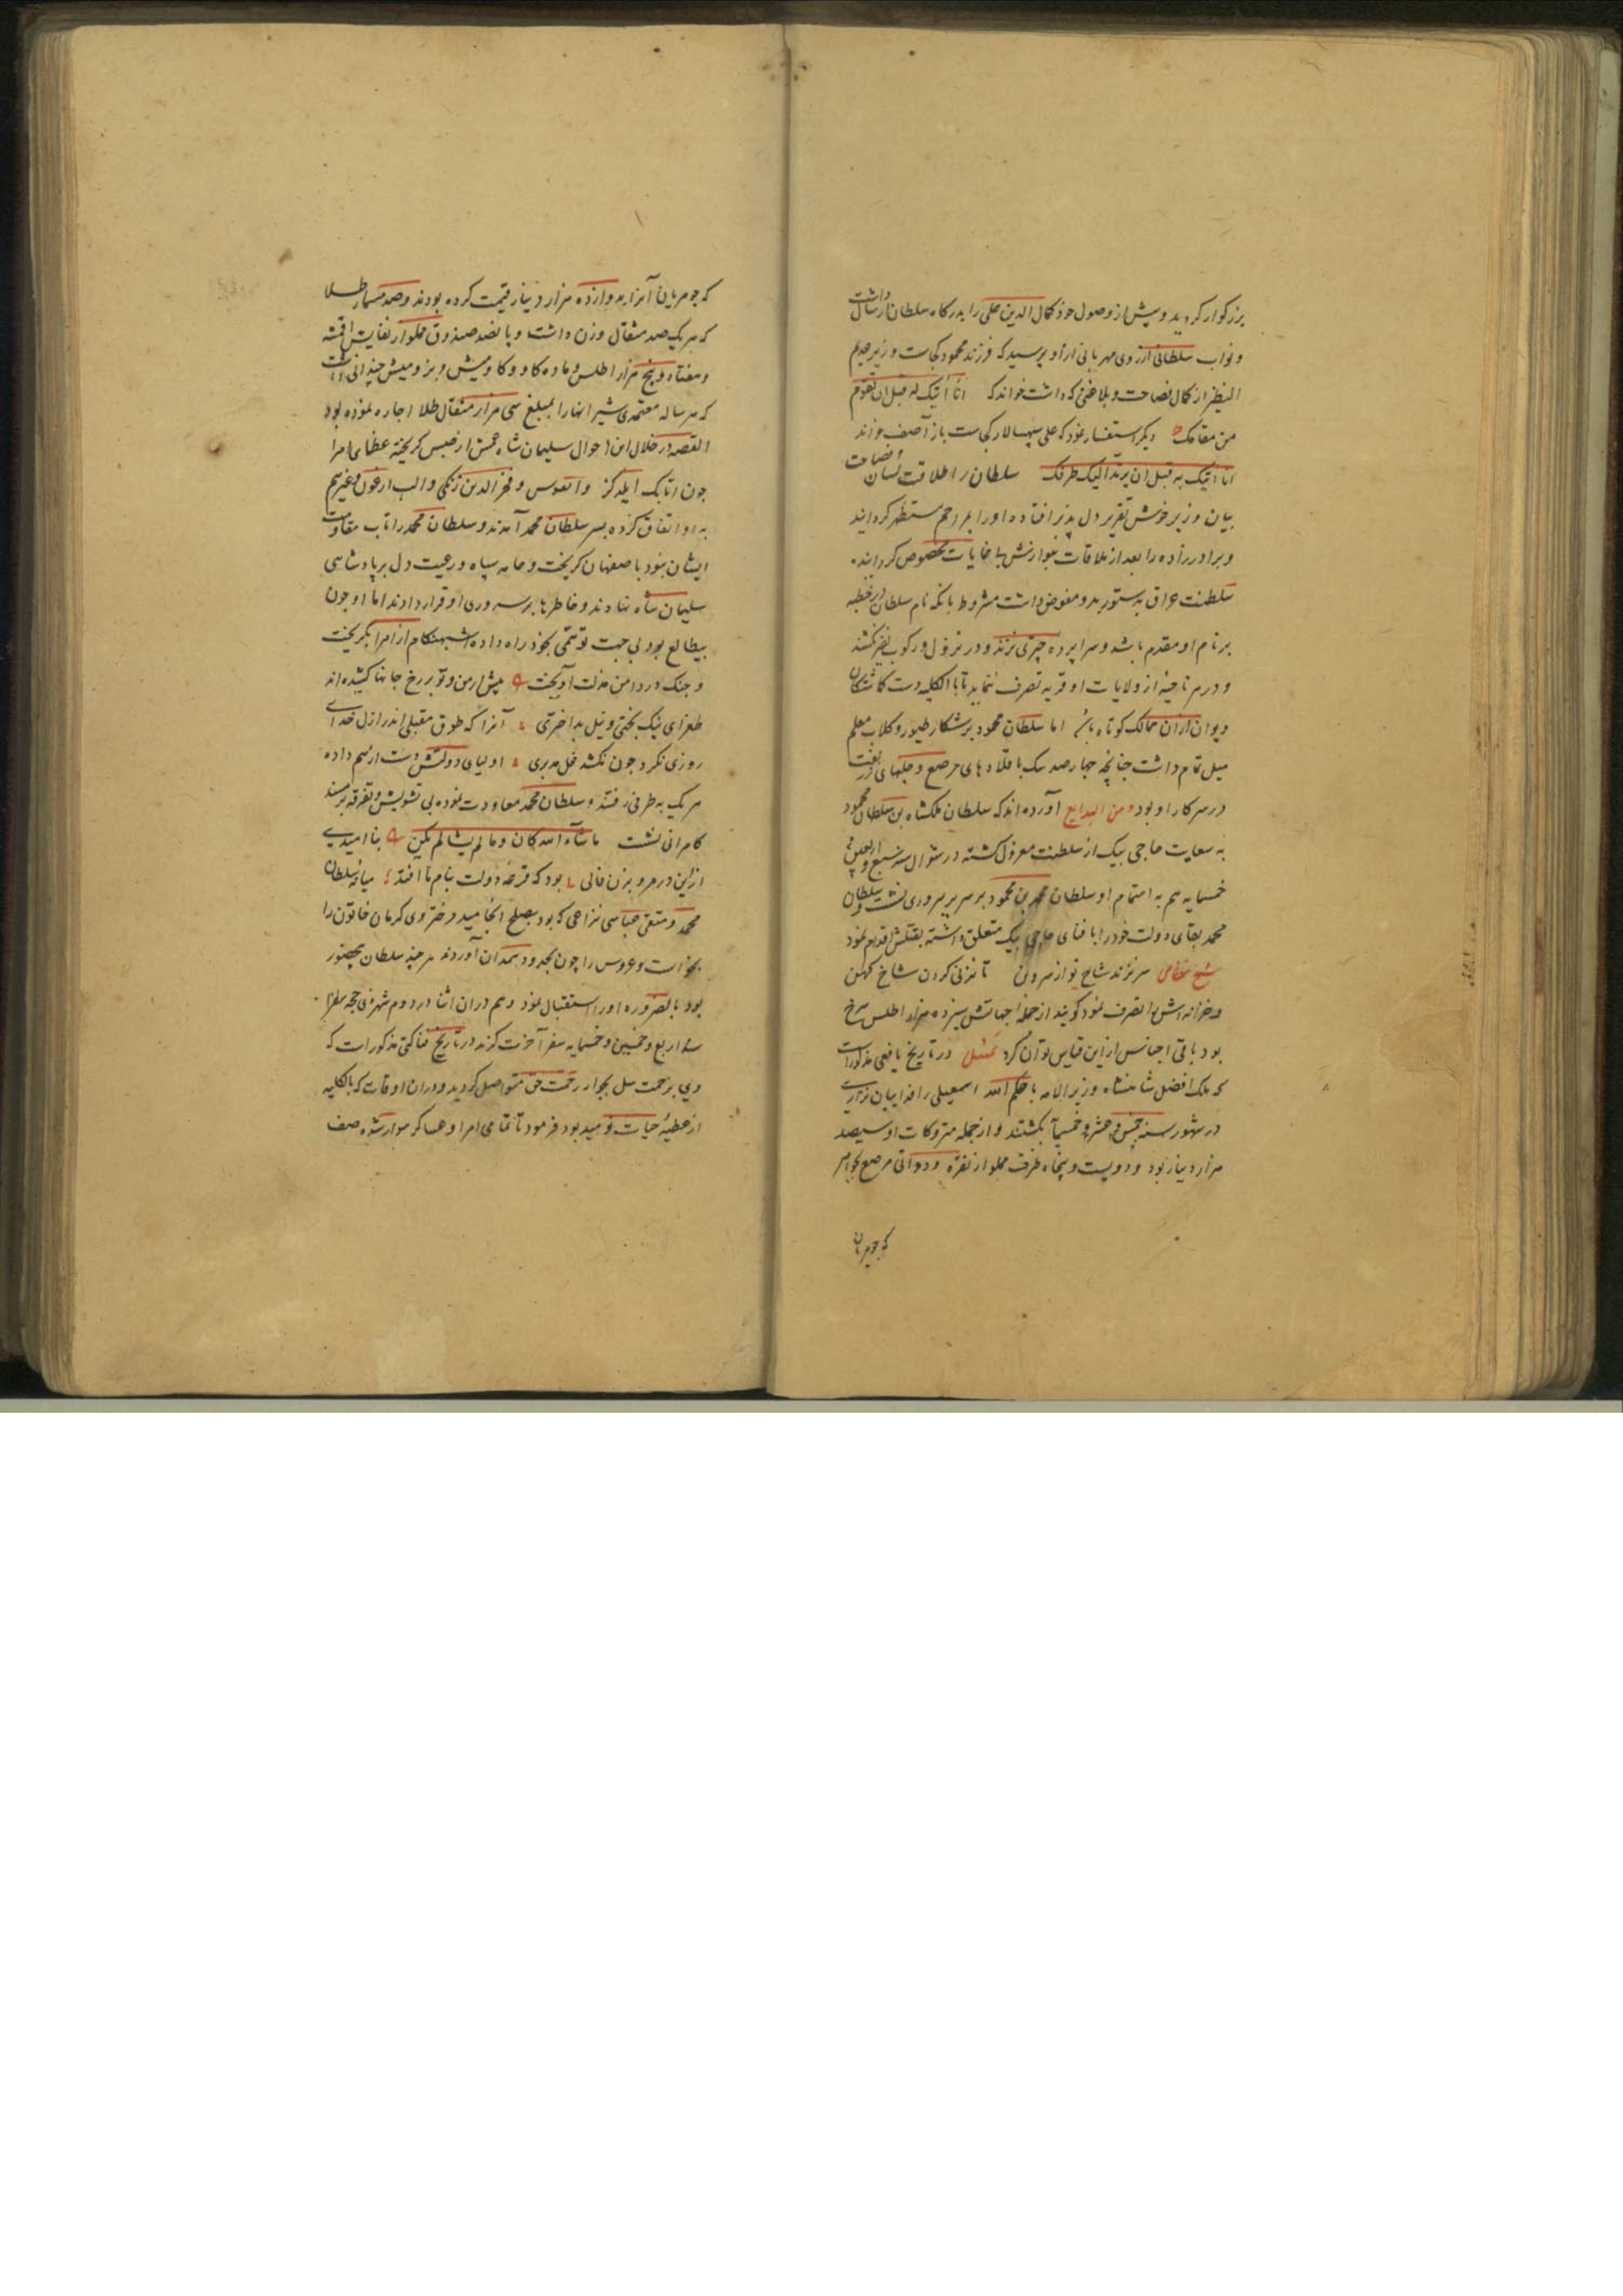 بزرکوار کردید و پیش از وصول خود کمال الدین علی را بدرکاه سلطان ارسال داشت
و نواب سلطانی از روی مهربانی ازاو پرسید که فرزند محمود کجاست و وزیر عدیم
النظیر از کمال فصاحت و بلاغتی که داشت خواند که انا آتیک به قبل ان تقوم
من مقامک دیکر استفسار نمود که علی سپهسالار کجاست باز آصف خواند
انا اتیک به قبل ان یرتد الیک طرفک سلطان را طلاقت لسان و فصاحت
بیان وزیر خوش تقریر دل پذیر افتاده او را بمراحم مستظهر کردانید
و برادرزاده را بعد از ملاقات بنوازش بی غایات مخصوص کردانید
سلطنت عراق بدستور بدو مفوض داشت مشروط بانکه نام سلطان در خطبه
بر نام او مقدم باشد و سراپرده چتری نزند و در نزول و رکوب نفیر نکشند
و در هر ناحیهٔ از ولایات او قریه تصرف نماید تا بالکلیه دست کماشتکان
دیوان ازان ممالک کوتاه باشد اما سلطان محمود بر شکار طیور و کلاب معلم
میل تمام داشت چنانچه چهارصد سک با قلادهای مرصع و جلهای زربفت
در سرکار او بود و من البدایع آورده اند که سلطان ملکشاه بن سلطان محمود
به سعایت حاجی بیک از سلطنت معزول کشته در شوال سنه سبع و اربعین و
خمسمایه هم به اهتمام او سلطان محمد بن محمود بر سریر سروری نشست و سلطان
محمد بقای دولت خود را با فنای حاجی بیک متعلق داشته بقتلش اقدام نمود
شیخ نظامی سر نزند شاخ نو از سرو بن تا نزنی کردن شاخ کهن
و خزانه اش را تصرف نمود کویند از جمله اجهاتش سیزده هزار اطلس سرخ
بود باقی اجناس از این قیاس توان کرد تمثیل در تاریخ یافعی مذکور است
که ملک افضل شاهنشاه وزیر الامر باحکم الله اسمعیلی را فداییان نزاریه
در شهور سنه خمس و عشر و خمسمآیه بکشتند و از جمله متروکات او سیصد
هزار دینار بود و دویست و پنجاه ظرف مملو از نقره و دواتی مرصع بجواهر
که جوهریان
که جوهریان آنرا بدوازده هزار دینار قیمت کرده بودند و صد مسمار طلا
که هر یک صد مثقال وزن داشت و پانصد صندوق مملو از نفایس اقمشه
و هفتاد و پنج هزار اطلس و ماده کاو و کاومیش و بز و میش چندانی داشت
که هر ساله معتمدی شیر انها را بمبلغ سی هزار مثقال طلا اجاره نموده بود
القصه در خلال این احوال سلیمان شاه عمش از حبس کریخته عظمای امرا
چون اتابک ایلدکز و اتقوس و فخر الدین زنکی و الب ارغون و غیرهم
به او اتفاق کرده بسر سلطان محمد آمدند و سلطان محمد را تاب مقاومت
ایشان نبود باصفهان کریخت و عامه سپاه و رعیت دل بر پادشاهی
سلیمان شاه نهادند و خاطرها بر سروری او قرار دادند اما او چون
بیطالع بود بی جهت توهمی بخود راه داده شبهنکام از امرا بکریخت
و چنک در دامن مذلت آویخت پیش از من و تو بر رخ جانها کشیده اند
طغرای نیک بختی و نیل بد اختری آنرا که طوق مقبلی اندر ازل خدای
روزی نکرد چون نکشد غل مدبری اولیای دولتش دست از هم داده
هر یک به طرفی رفتند و سلطان محمد معاودت نموده بی تشویش و تفرقه بر مسند
کامرانی نشست ماشآء الله کان و ما لم یشا لم یکن بنا امیدی
ازین در مرو بزن فالی بود که قرعهٔ دولت بنام ما افتد میانهٔ سلطان
محمد و متقی عباسی نزاعی که بود بصلح انجامید و دختر وی کرمان خاتون را
بخواست و عروس را چون بحدود همدان آوردند هر چند سلطان
بود بالضروره او را استقبال نمود و هم دران اثنا در دوم شهر ذی حجه
سنه اربع و خمسین و خمسمایه سفر آخرت کزید در تاریخ بناکتی مذکور است که
وی بزحمت سل بجوار رحمت حق متواصل کردید و دران اوقات که بالکلیه
از عطیهٔ حیات نومید بود فرمود تا تمامی امرا و عساکر سوار شده صف